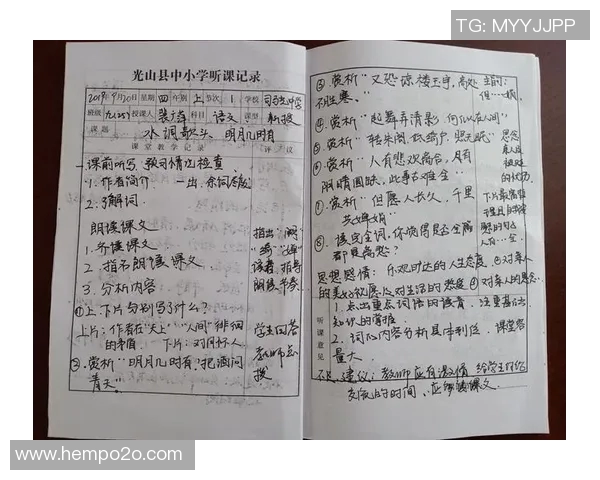 TG: MYYJJPP
光山县中小学听课记录
2019年9月20日 星期 四 年别 上 节次 1 学校
班级 九(25) 授课人 科目 语文 课型 新授
课题 水调歌头·明月几时有
课堂教学记录 评议
一、课前听写、预习情况检查
1. 作者简介
2. 了解词
朗读课文
1. 齐读课文
2. 指名朗读课文
3. 分析内容
①上、下片分别写了什么?
上片:作者在"天上""人间"徘徊
的矛盾 下片:对月怀人
②. 赏析"明月几时有,把酒问
青天"
指出
读音,指导
朗读、节奏
学生回答
教师点
拨
③. 赏析"又恐琼楼玉宇,高处
不胜寒。"
④. 赏析"起舞弄清影,何似在人间"
⑤. 赏析"转朱阁,低绮户,照无眠"
⑥. 赏析"人有悲欢离合,月有
阴晴圆缺,此事古难全"
⑦. 赏析"但愿人长久,千里
共婵娟"
⑧. 读完全词,你觉得是否全篇
都是离愁?
思想感情:乐观旷达的人生态度 ②对亲人
的美好祝愿 ③对生活的热爱 ④对亲人的思念
听课意见
1. 点出重点词语的读音,注重基础
知识的掌握
2. 词的内容分析具体到位,课堂容
量大。
建议:教师应有激情,给学生
交流的时间,应 读课文。
www.hempo2o.com